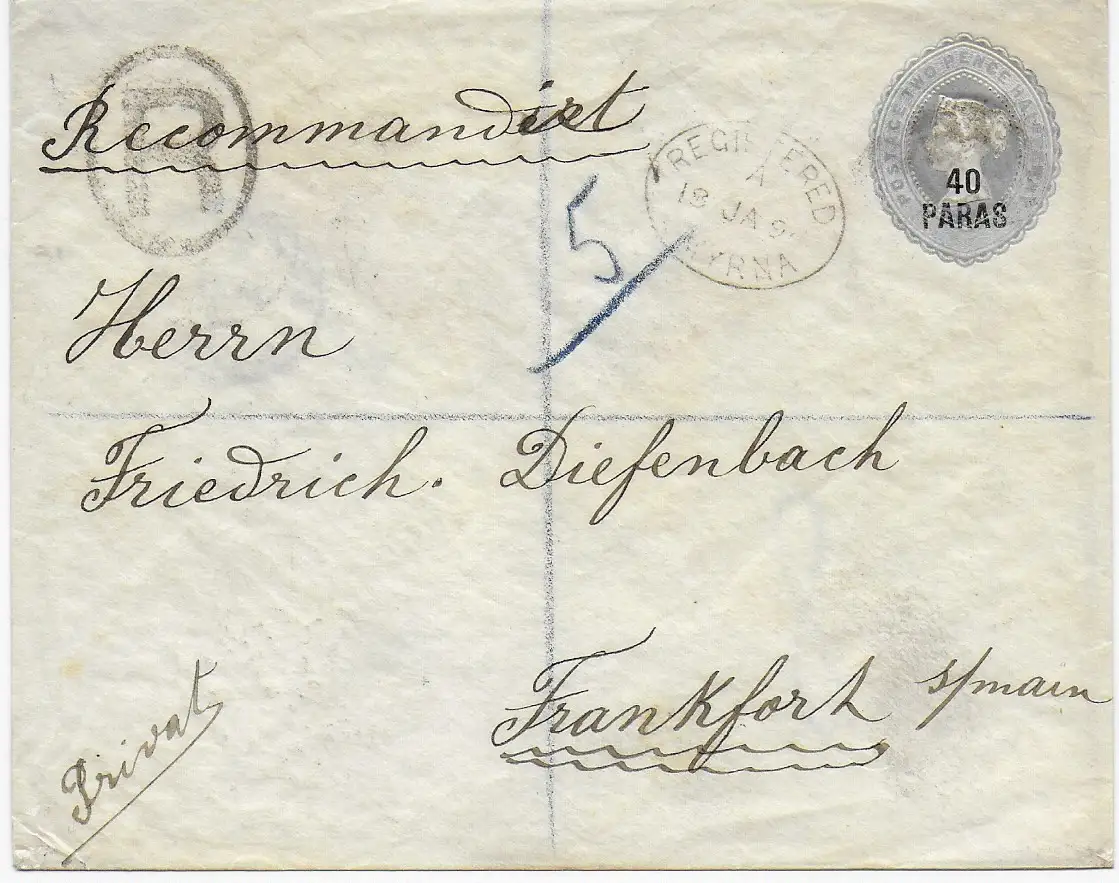 Recommandirt
R
REGISTERED
A
18 JA 9
SMYRNA
POSTAGE TWO PENCE HALFPENNY
40
PARAS
5
Herrn
Friedrich. Diefenbach
Frankfort s/main
Privat